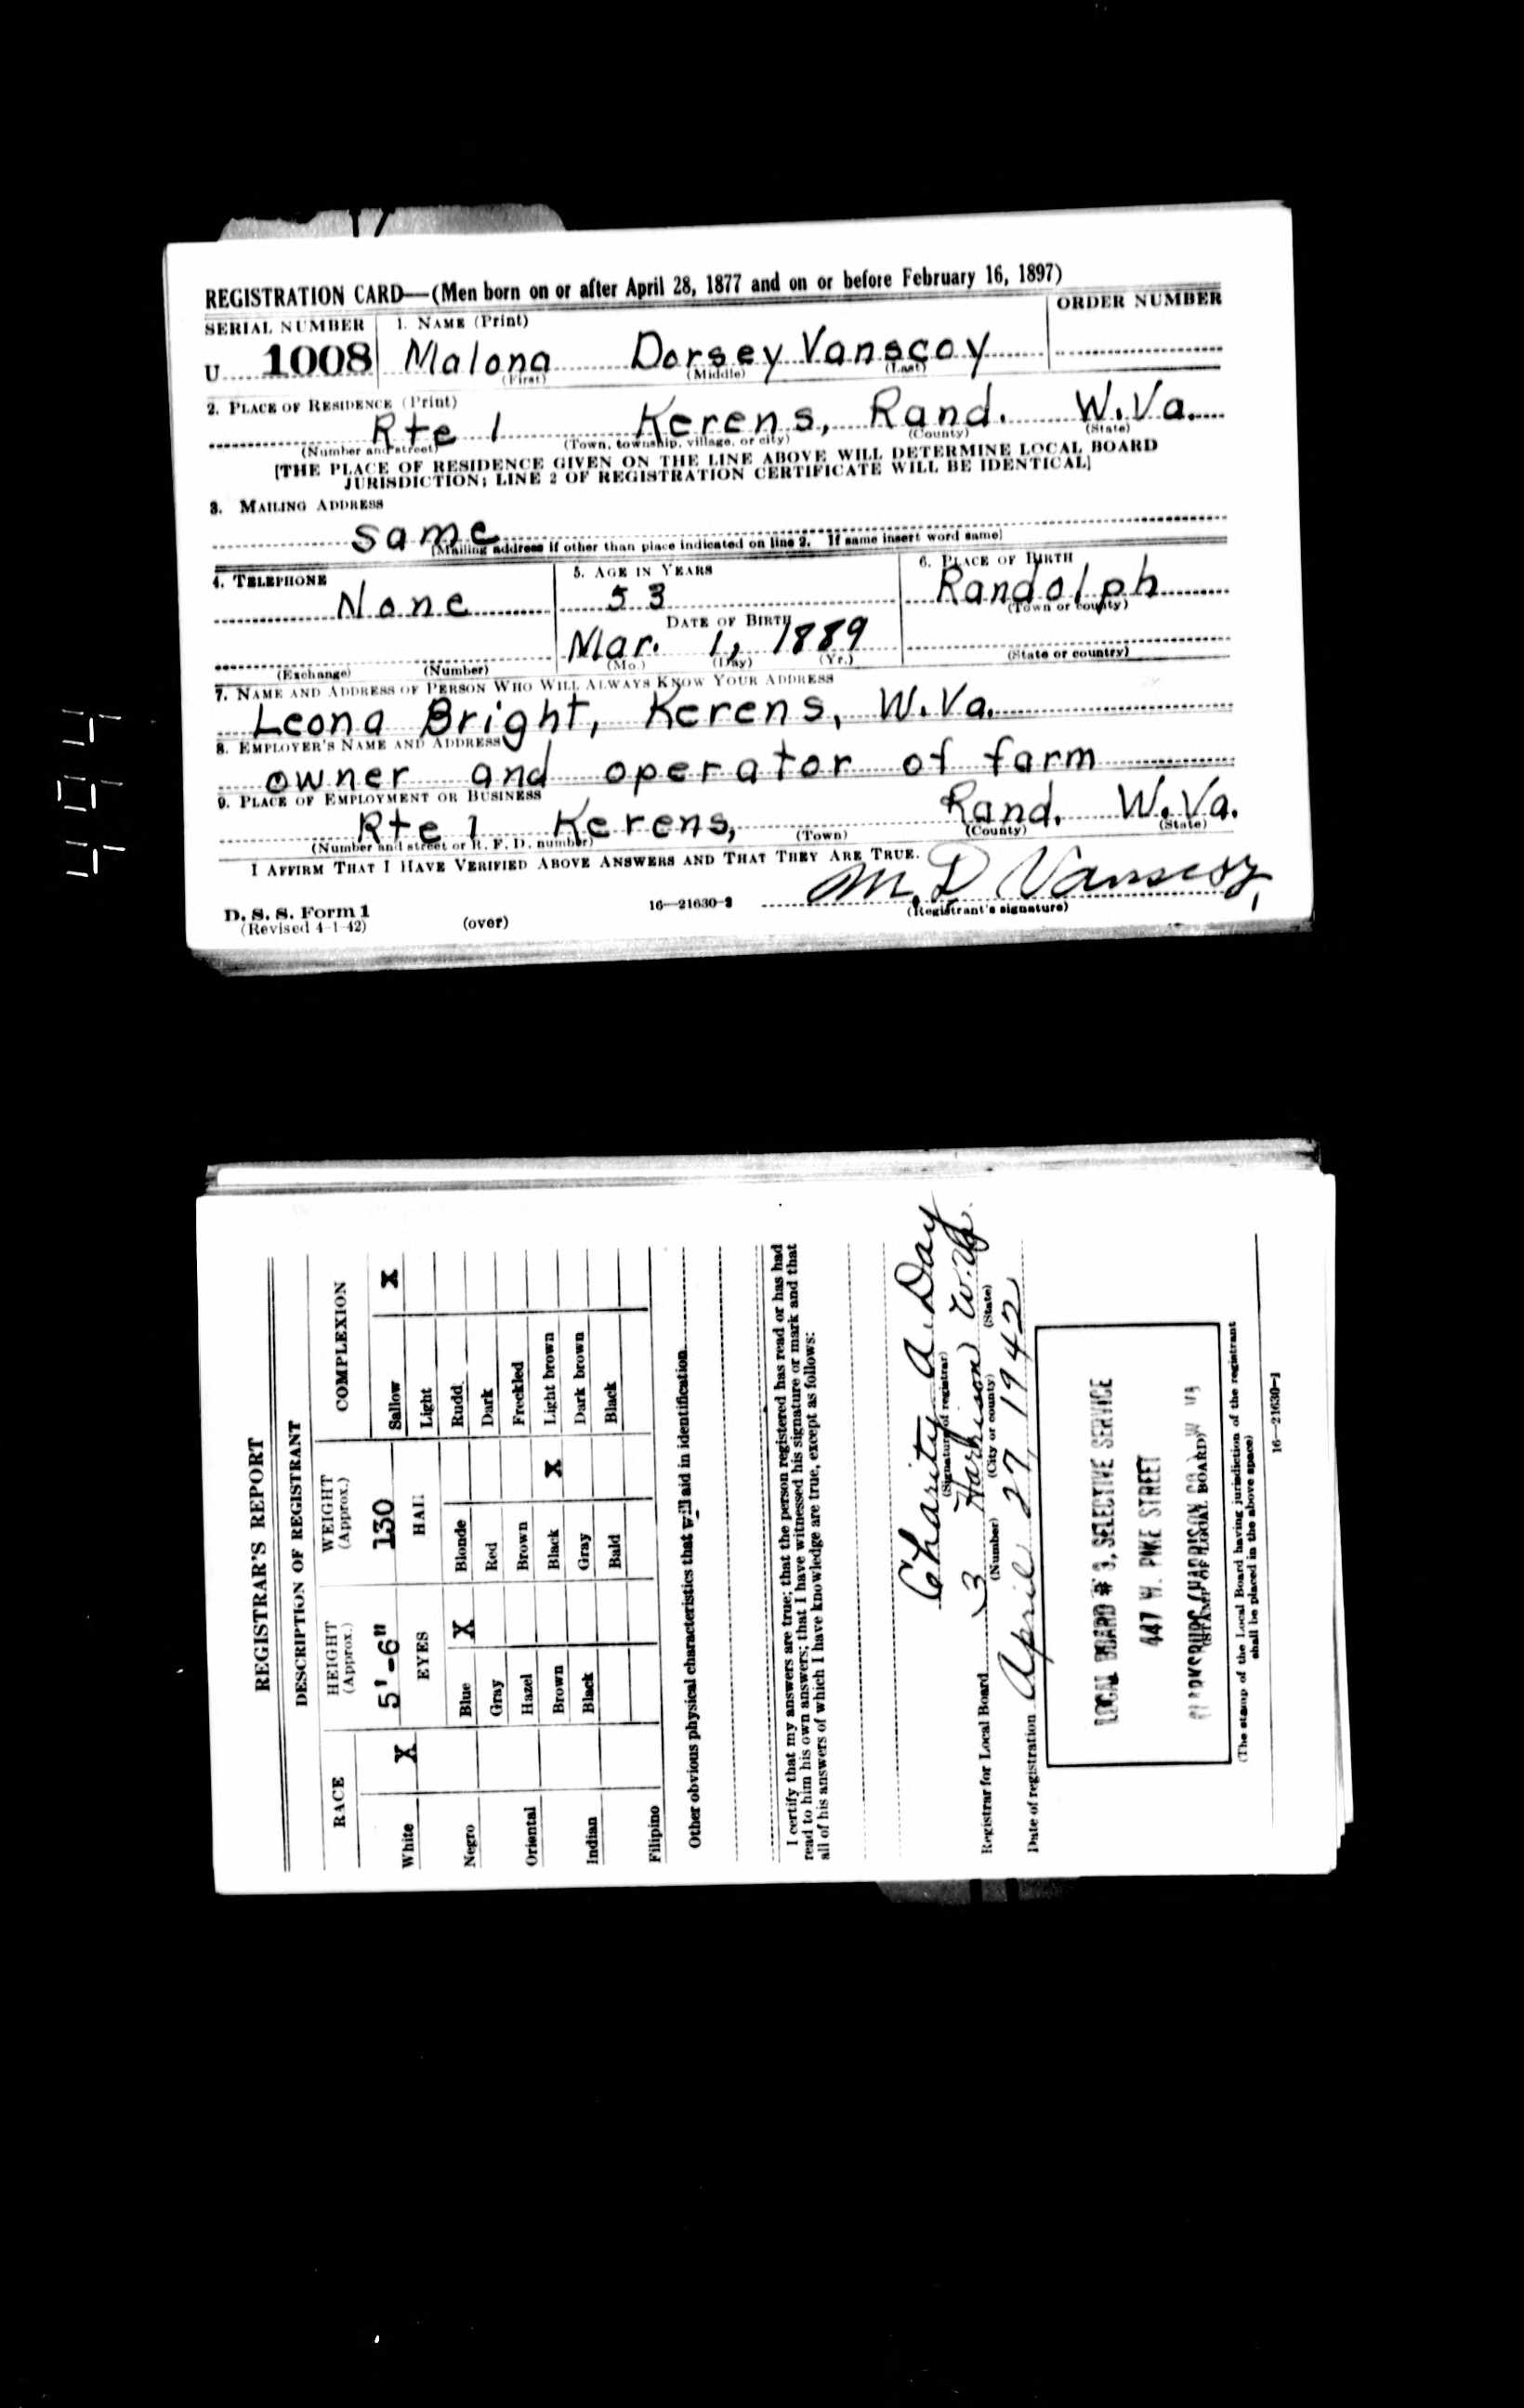 REGISTRATION CARD—(Men born on or after April 28, 1877 and on or before February 16, 1897)
SERIAL NUMBER
1. NAME (Print)
ORDER NUMBER
U 1008
Malona Dorsey Vanscoy
(First) (Middle) (Last)
2. PLACE OF RESIDENCE (Print)
Rte 1 Kerens, Rand. W.Va.
(Number and street) (Town, township, village, or city) (County) (State)
[THE PLACE OF RESIDENCE GIVEN ON THE LINE ABOVE WILL DETERMINE LOCAL BOARD
JURISDICTION; LINE 2 OF REGISTRATION CERTIFICATE WILL BE IDENTICAL]
3. MAILING ADDRESS
same
(Mailing address if other than place indicated on line 2. If same insert word same)
4. TELEPHONE
None
(Exchange) (Number)
5. AGE IN YEARS
53
DATE OF BIRTH
Mar. 1, 1889
(Mo.) (Day) (Yr.)
6. PLACE OF BIRTH
Randolph
(Town or county)
(State or country)
7. NAME AND ADDRESS OF PERSON WHO WILL ALWAYS KNOW YOUR ADDRESS
Leona Bright, Kerens, W.Va.
8. EMPLOYER'S NAME AND ADDRESS
owner and operator of farm
9. PLACE OF EMPLOYMENT OR BUSINESS
Rte 1 Kerens, Rand. W.Va.
(Number and street or R. F. D. number) (Town) (County) (State)
I AFFIRM THAT I HAVE VERIFIED ABOVE ANSWERS AND THAT THEY ARE TRUE.
M. D Vanscoy
D. S. S. Form 1
(Revised 4-1-42) (over) 16—21630-2 (Registrant's signature)
REGISTRAR'S REPORT
DESCRIPTION OF REGISTRANT
RACE
HEIGHT (Approx.)
WEIGHT (Approx.)
COMPLEXION
White X
5'-6"
130
Sallow X
EYES
HAIR
Light
Negro
Blue X
Blonde
Rudd
Gray
Red
Dark
Oriental
Hazel
Brown
Freckled
Brown
Black X
Light brown
Indian
Black
Gray
Dark brown
Bald
Black
Filipino
Other obvious physical characteristics that will aid in identification
I certify that my answers are true; that the person registered has read or has had
read to him his own answers; that I have witnessed his signature or mark and that
all of his answers of which I have knowledge are true, except as follows:
Charity A. Day
(Signature of registrar)
Registrar for Local Board 3 Harrison W.Va.
(Number) (City or county) (State)
Date of registration April 27, 1942
LOCAL BOARD # 3, SELECTIVE SERVICE
447 W. PIKE STREET
CLARKSBURG (HARRISON CO.) W VA
(STAMP OF LOCAL BOARD)
(The stamp of the Local Board having jurisdiction of the registrant
shall be placed in the above space)
16—21630-1